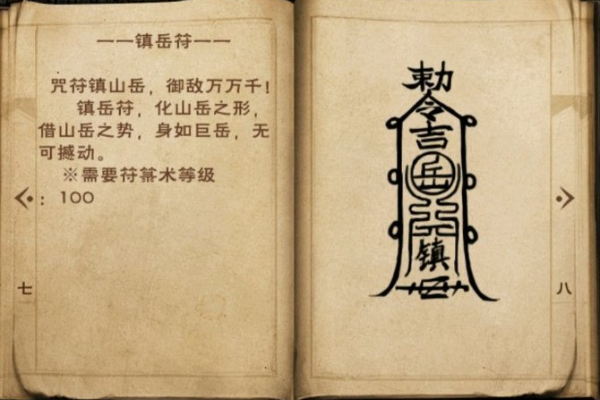 ——镇岳符——
咒符镇山岳，御敌万万千！
镇岳符，化山岳之形，
借山岳之势，身如巨岳，无
可撼动。
※需要符箓术等级
：100
七
敕
令
吉
岳
镇
八